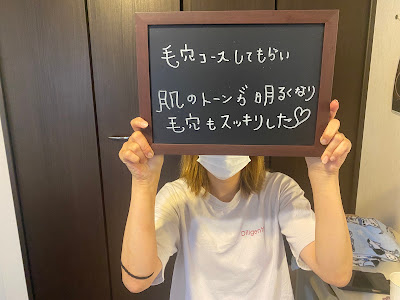 毛穴コースしてもらい
肌のトーンが明るくなり
毛穴もスッキリした♡